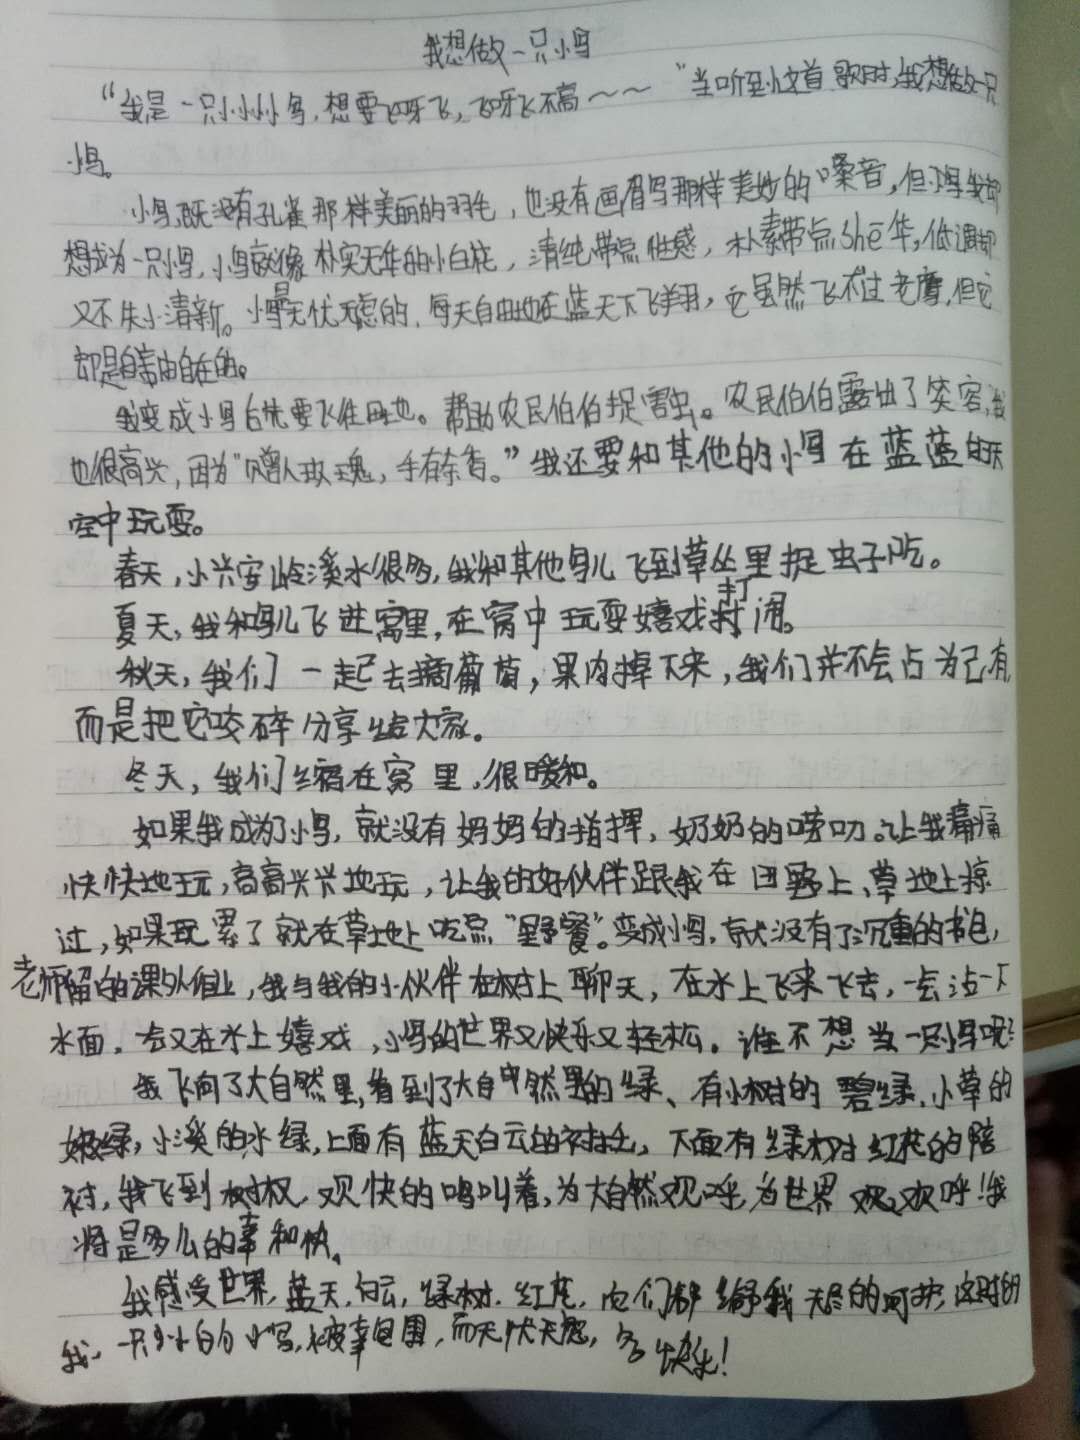 我想做一只小鸟
“我是一只小小小鸟，想要飞呀飞，飞呀飞不高～～”当听到这首歌时，我想做一只
小鸟。
小鸟既没有孔雀那样美丽的羽毛，也没有画眉鸟那样美妙的嗓音，但小鸟我却
想成为一只小鸟，小鸟就像朴实无华的小白花，清纯带点性感，朴素带点shē华，低调却
又不失小清新。小鸟是无忧无虑的，每天自由地在蓝天下飞翔，它虽然飞不过老鹰，但它
却是自由自在的。
我变成小鸟后先要飞往田地。帮助农民伯伯捉害虫。农民伯伯露出了笑容，我
也很高兴，因为“赠人玫瑰，手有余香。”我还要和其他的小鸟在蓝蓝的天
空中玩耍。
春天，小兴安岭溪水很多，我和其他鸟儿飞到草丛里捉虫子吃。
夏天，我和鸟儿飞进窝里，在窝中玩耍嬉戏打闹。
秋天，我们一起去摘葡萄，果肉掉下来，我们并不会占为己有
而是把它咬碎分享给大家。
冬天，我们缩在窝里，很暖和。
如果我成为了小鸟，就没有妈妈的指挥，奶奶的唠叨。让我痛痛
快快地玩，高高兴兴地玩，让我的好伙伴跟我在田野上、草地上掠
过，如果玩累了就在草地上吃点“野餐”。变成小鸟，就没有了沉重的书包，
老师留的课外作业，我与我的小伙伴在树上聊天，在水上飞来飞去，一会沾一下
水面，一会又在水上嬉戏，小鸟的世界又快乐又轻松。谁不想当一只小鸟呢？
我飞向了大自然里，看到了大自然里的绿、有小树的碧绿，小草的
嫩绿，小溪的水绿，上面有蓝天白云的衬托，下面有绿树红花的陪
衬，我飞到树杈，欢快的鸣叫着，为大自然欢呼，为世界欢呼！我
将是多么的幸和快。
我感受世界，蓝天，白云，绿树，红花，它们都给予我无尽的呵护，这时的
我，一只小小的小鸟，被幸包围，而无忧无虑，快乐！